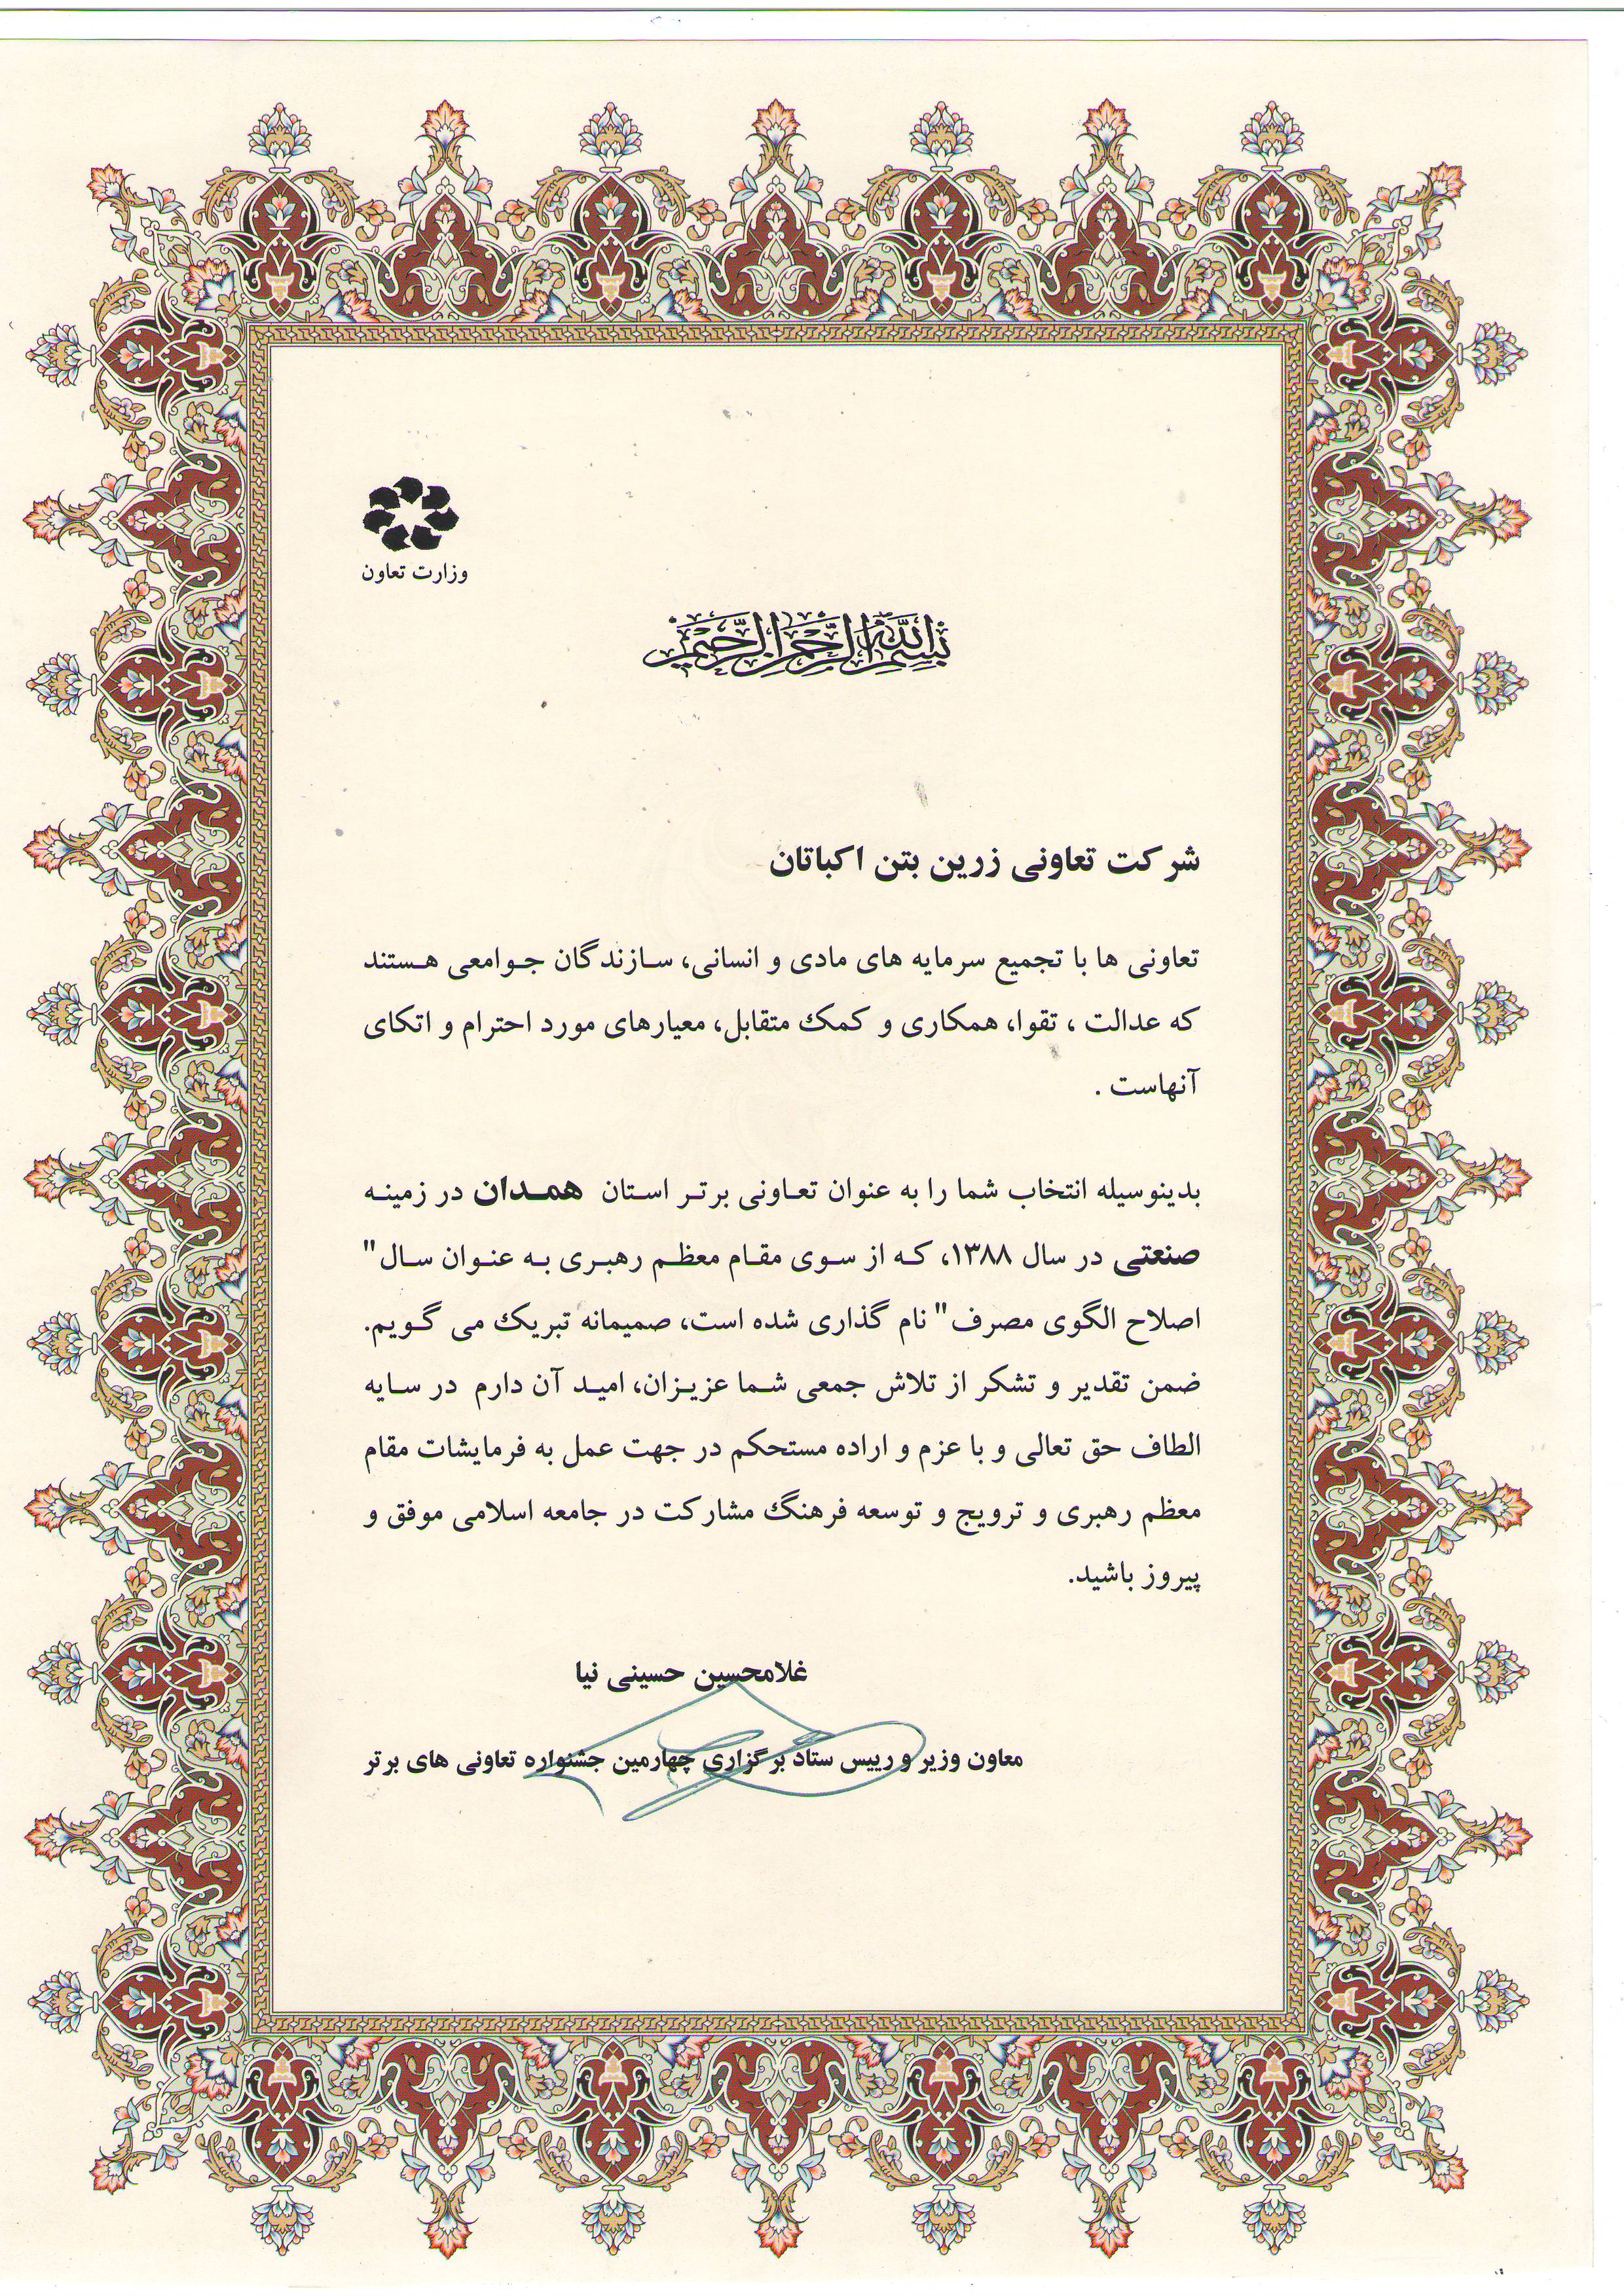 وزارت تعاون
بسم الله الرحمن الرحیم
شرکت تعاونی زرین بتن اکباتان
تعاونی ها با تجمیع سرمایه های مادی و انسانی، سازندگان جوامعی هستند
که عدالت ، تقوا، همکاری و کمک متقابل، معیارهای مورد احترام و اتکای
آنهاست .
بدینوسیله انتخاب شما را به عنوان تعاونی برتر استان همدان در زمینه
صنعتی در سال ۱۳۸۸، که از سوی مقام معظم رهبری به عنوان سال "
اصلاح الگوی مصرف" نام گذاری شده است، صمیمانه تبریک می گویم.
ضمن تقدیر و تشکر از تلاش جمعی شما عزیزان، امید آن دارم در سایه
الطاف حق تعالی و با عزم و اراده مستحکم در جهت عمل به فرمایشات مقام
معظم رهبری و ترویج و توسعه فرهنگ مشارکت در جامعه اسلامی موفق و
پیروز باشید.
غلامحسین حسینی نیا
معاون وزیر و رییس ستاد برگزاری چهارمین جشنواره تعاونی های برتر